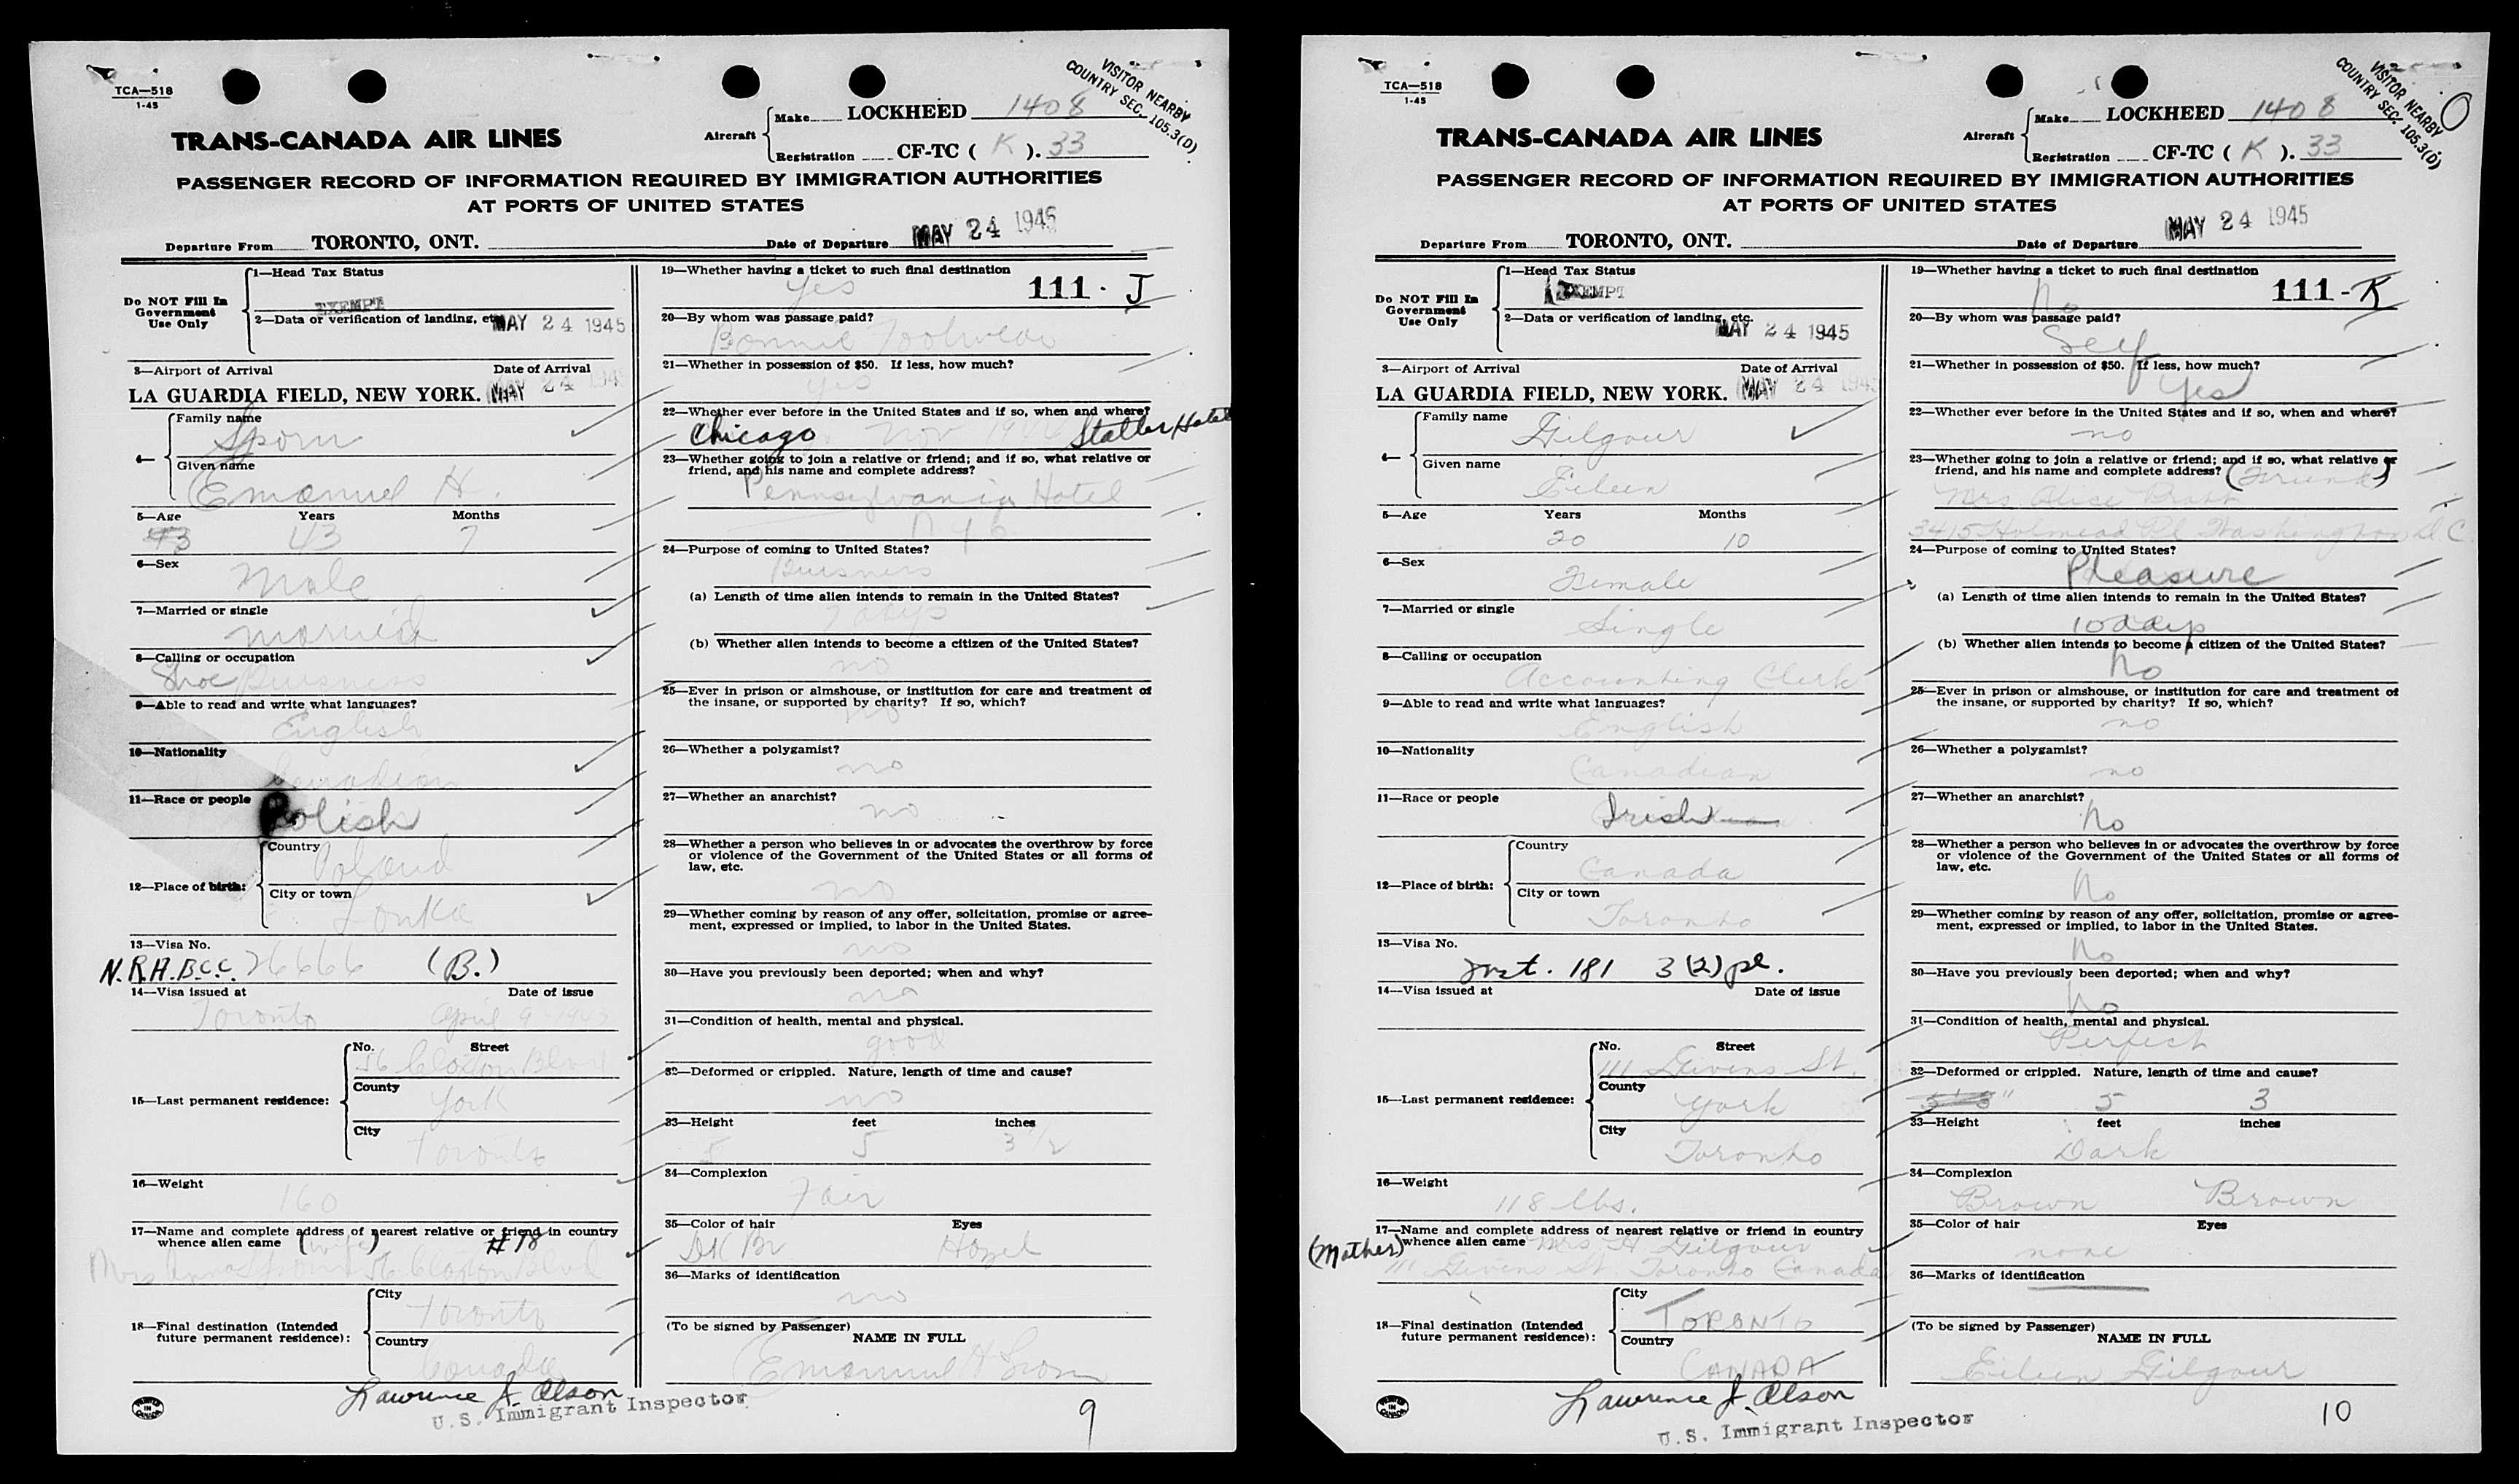 TCA—518
1-45
VISITOR NEARBY
COUNTRY SEC. 105.3(D)
TRANS-CANADA AIR LINES
Aircraft
Make LOCKHEED 1408
Registration CF-TC ( K ). 33
PASSENGER RECORD OF INFORMATION REQUIRED BY IMMIGRATION AUTHORITIES
AT PORTS OF UNITED STATES
Departure From TORONTO, ONT. Date of Departure MAY 24 1945
Do NOT Fill In
Government
Use Only
1—Head Tax Status
EXEMPT
2—Data or verification of landing, etc. MAY 24 1945
3—Airport of Arrival Date of Arrival
LA GUARDIA FIELD, NEW YORK. MAY 24 1945
4—
Family name
Sporn
Given name
Emanuel H.
5—Age Years Months
43 43 7
6—Sex
Male
7—Married or single
Married
8—Calling or occupation
Shoe Buisness
9—Able to read and write what languages?
English
10—Nationality
Canadian
11—Race or people
Polish
12—Place of birth:
Country
Poland
City or town
13—Visa No.
N.R.A.B.C.C. 26666 (B.)
14—Visa issued at Date of issue
Toronto April 9 1943
15—Last permanent residence:
No. Street
56 Claxton Blvd
County
York
City
Toronto
16—Weight
160
17—Name and complete address of nearest relative or friend in country
whence alien came (wife) #18
Mrs Anna Sporn 56 Claxton Blvd
18—Final destination (Intended
future permanent residence):
City
Toronto
Country
Canada
Lawrence J. Olson
U.S. Immigrant Inspector
19—Whether having a ticket to such final destination
yes 111 - J
20—By whom was passage paid?
Bonnie
21—Whether in possession of $50. If less, how much?
yes
22—Whether ever before in the United States and if so, when and where?
Chicago Nov Statler Hotel
23—Whether going to join a relative or friend; and if so, what relative or
friend, and his name and complete address?
Pennsylvania Hotel
24—Purpose of coming to United States?
Buisness
(a) Length of time alien intends to remain in the United States?
7 days
(b) Whether alien intends to become a citizen of the United States?
no
25—Ever in prison or almshouse, or institution for care and treatment of
the insane, or supported by charity? If so, which?
no
26—Whether a polygamist?
no
27—Whether an anarchist?
no
28—Whether a person who believes in or advocates the overthrow by force
or violence of the Government of the United States or all forms of
law, etc.
no
29—Whether coming by reason of any offer, solicitation, promise or agree-
ment, expressed or implied, to labor in the United States.
no
30—Have you previously been deported; when and why?
no
31—Condition of health, mental and physical.
good
32—Deformed or crippled. Nature, length of time and cause?
no
33—Height feet inches
5 5 3 1/2
34—Complexion
Fair
35—Color of hair Eyes
DK Br Hazel
36—Marks of identification
no
(To be signed by Passenger)
NAME IN FULL
Emanuel H Sporn
PRINTED IN CANADA
9
TCA—518
1-45
VISITOR NEARBY
COUNTRY SEC. 105.3(D)
TRANS-CANADA AIR LINES
Aircraft
Make LOCKHEED 1408
Registration CF-TC ( K ). 33
PASSENGER RECORD OF INFORMATION REQUIRED BY IMMIGRATION AUTHORITIES
AT PORTS OF UNITED STATES
Departure From TORONTO, ONT. Date of Departure MAY 24 1945
Do NOT Fill In
Government
Use Only
1—Head Tax Status
EXEMPT
2—Data or verification of landing, etc.
MAY 24 1945
3—Airport of Arrival Date of Arrival
LA GUARDIA FIELD, NEW YORK. MAY 24 1945
4—
Family name
Gilgour
Given name
Eileen
5—Age Years Months
20 10
6—Sex
Female
7—Married or single
Single
8—Calling or occupation
Accounting Clerk
9—Able to read and write what languages?
English
10—Nationality
Canadian
11—Race or people
Irish
12—Place of birth:
Country
Canada
City or town
Toronto
13—Visa No.
Inst. 181 3(2) pl.
14—Visa issued at Date of issue
15—Last permanent residence:
No. Street
111 Givens St.
County
York
City
Toronto
16—Weight
118 lbs.
17—Name and complete address of nearest relative or friend in country
(Mother) whence alien came Mrs. H Gilgour
111 Givens St. Toronto Canada
18—Final destination (Intended
future permanent residence):
City
TORONTO
Country
CANADA
Lawrence J. Olson
U.S. Immigrant Inspector
19—Whether having a ticket to such final destination
No 111-K
20—By whom was passage paid?
Self
21—Whether in possession of $50. If less, how much?
Yes
22—Whether ever before in the United States and if so, when and where?
no
23—Whether going to join a relative or friend; and if so, what relative or
friend, and his name and complete address? (Friend)
Mrs. Alice Pratt
3415 Holmead Pl Washington D.C.
24—Purpose of coming to United States?
Pleasure
(a) Length of time alien intends to remain in the United States?
10 days
(b) Whether alien intends to become a citizen of the United States?
No
25—Ever in prison or almshouse, or institution for care and treatment of
the insane, or supported by charity? If so, which?
no
26—Whether a polygamist?
no
27—Whether an anarchist?
No
28—Whether a person who believes in or advocates the overthrow by force
or violence of the Government of the United States or all forms of
law, etc.
No
29—Whether coming by reason of any offer, solicitation, promise or agree-
ment, expressed or implied, to labor in the United States.
No
30—Have you previously been deported; when and why?
No
31—Condition of health, mental and physical.
Perfect
32—Deformed or crippled. Nature, length of time and cause?
5'3" 5 3
33—Height feet inches
Dark
34—Complexion
Brown Brown
35—Color of hair Eyes
none
36—Marks of identification
(To be signed by Passenger)
NAME IN FULL
Eileen Gilgour
PRINTED IN CANADA
10